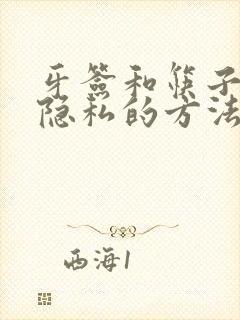 牙签和筷子
隐私的方法
西海1